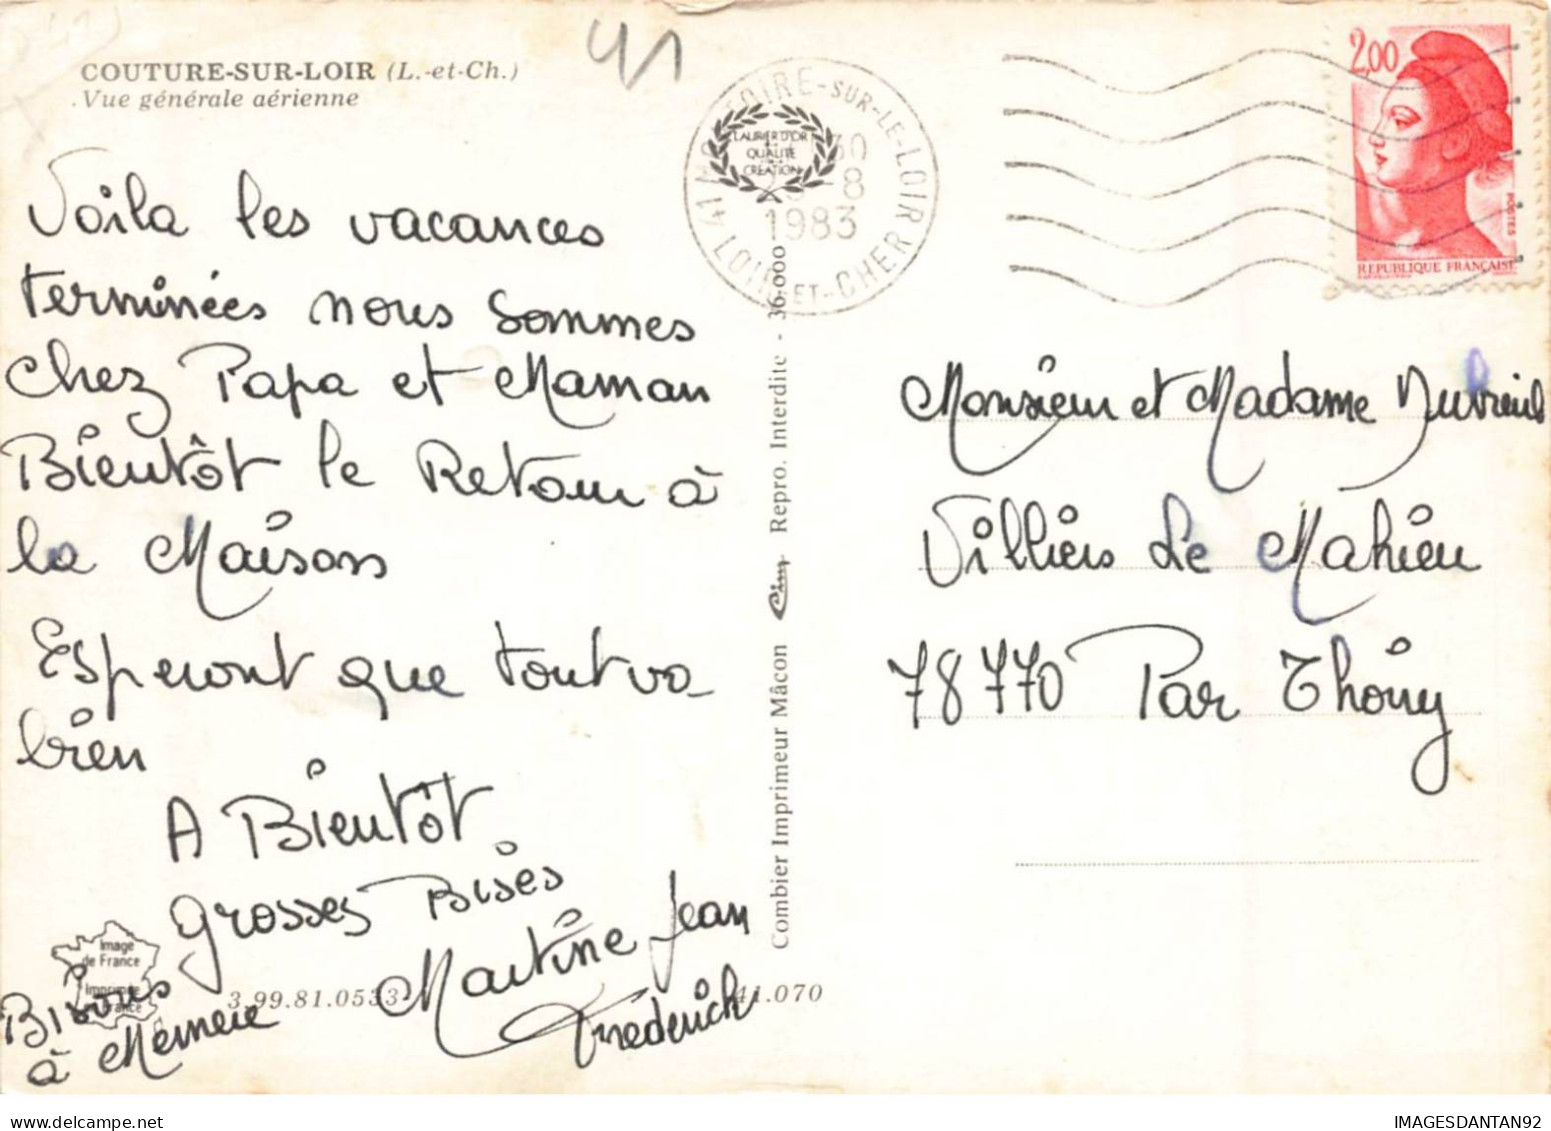 41
COUTURE-SUR-LOIR (L.-et-Ch.)
Vue générale aérienne
Voila les vacances
terminées nous sommes
chez Papa et Maman
Bientôt le Retour à
la Maison
Esperont que tout va
bien
A Bientôt
grosses Bises
Martine Jean
Frederich
Bisous
à Memere
Image
de France
Imprimée
en France
3.99.81.0533
41.070
Combier Imprimeur Mâcon Cim Repro. Interdite - 36.000
LAURIER D'OR
DE LA
QUALITÉ
CRÉATION
41 MONTOIRE-SUR-LE-LOIR
30
-8
1983
LOIR-ET-CHER
2,00
POSTES
REPUBLIQUE FRANÇAISE
Monsieur et Madame Dubreuil
Villiers Le Mahieu
78770 Par Thoiry
delcampe.net
IMAGESDANTAN92